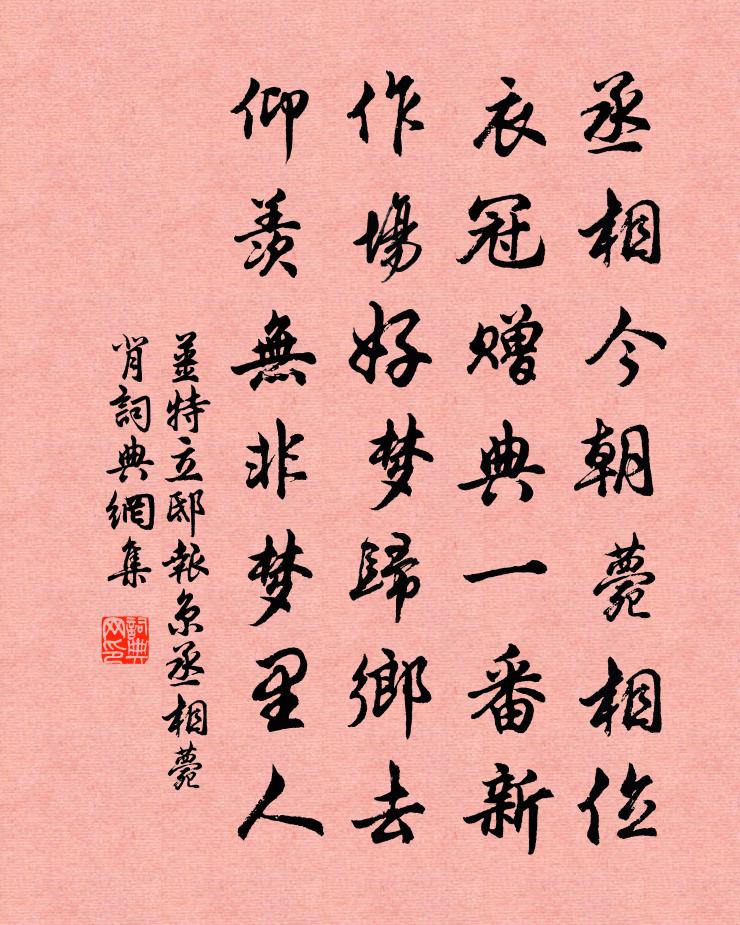 丞相今朝薨相位
衣冠贈典一番新
作場好梦歸鄉去
仰羨無非梦里人
薑特立邸報京丞相薨
肖詞典網集
詞典网印